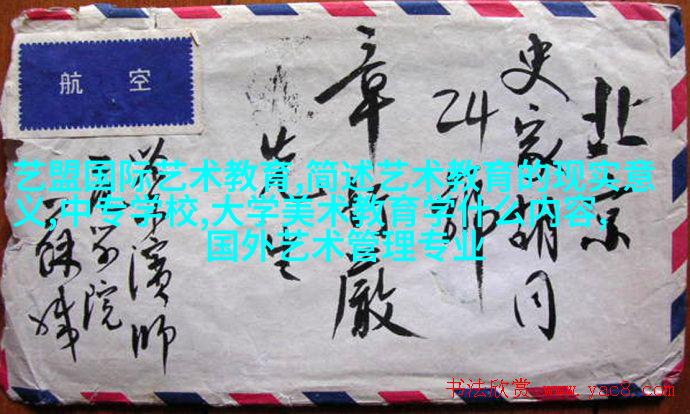 航 空
北京
史家胡同
24
章
先生
濱師
院
艺盟国际艺术教育,简述艺术教育的现实意
义,中专学校,大学美术教育学什么内容,
国外艺术管理专业
书法欣赏 www.yac8.com